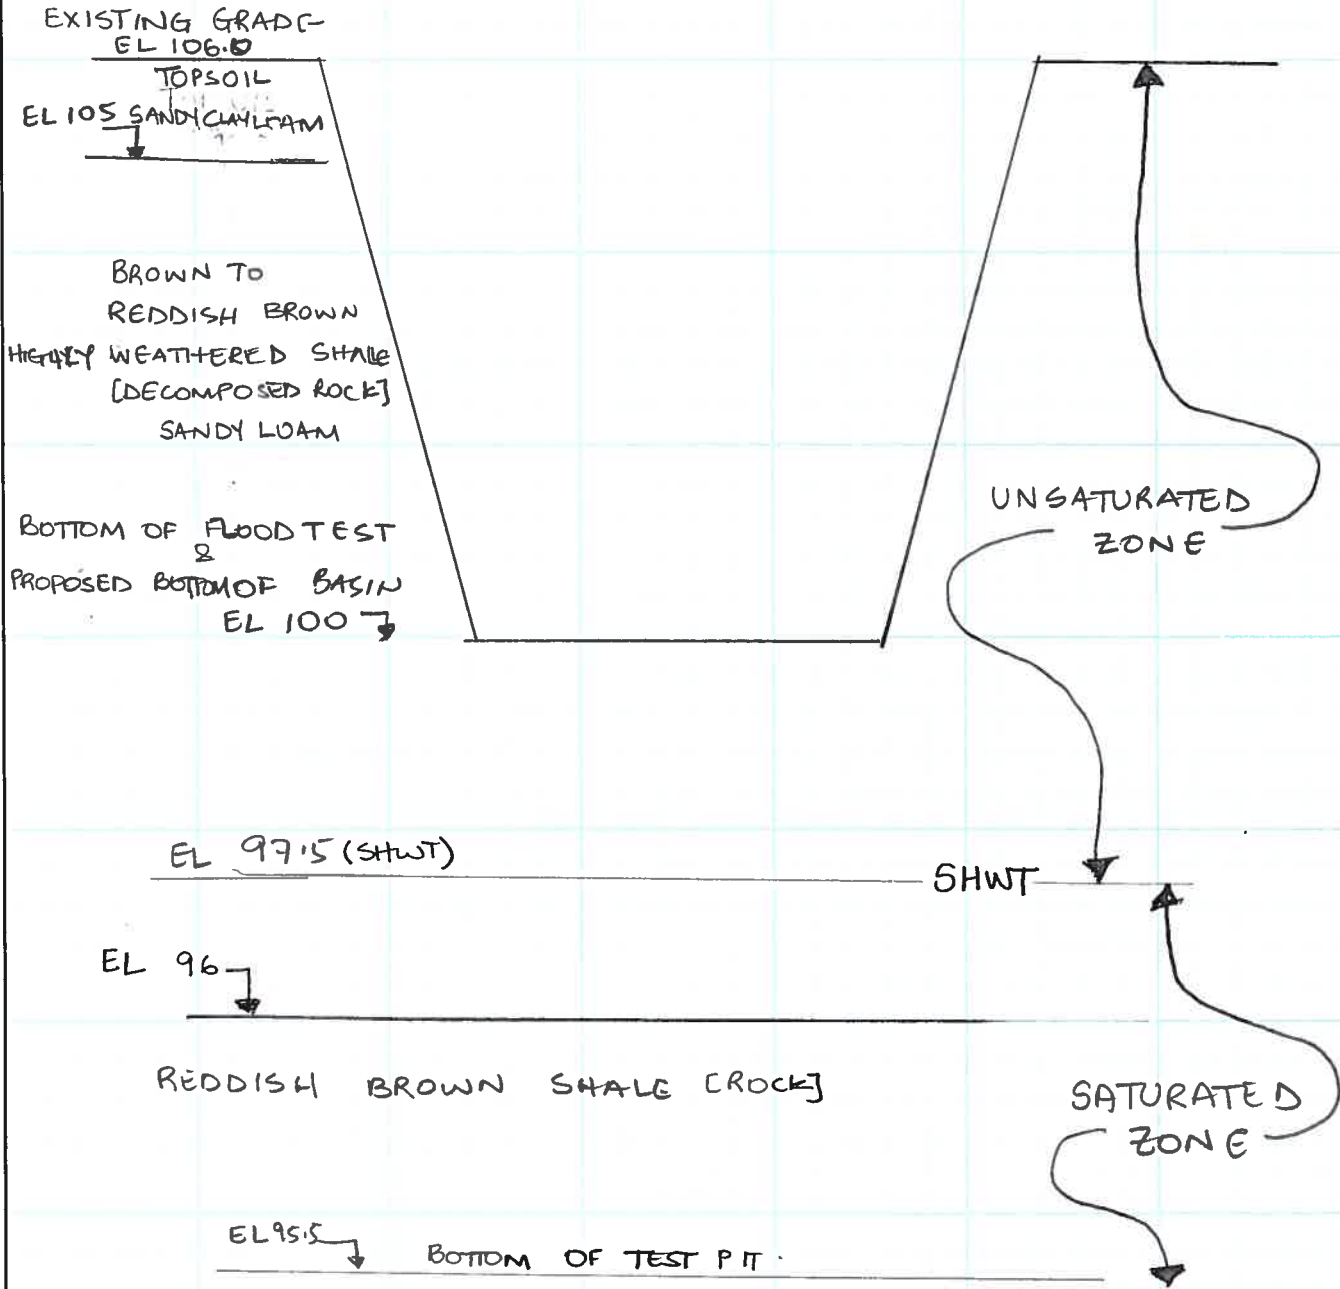 EXISTING GRADE
EL 106.0
TOPSOIL
EL 105 SANDY CLAY LOAM
BROWN TO
REDDISH BROWN
HIGHLY WEATHERED SHALE
[DECOMPOSED ROCK]
SANDY LOAM
UNSATURATED
ZONE
BOTTOM OF FLOOD TEST
&
PROPOSED BOTTOM OF BASIN
EL 100
EL 97.5 (SHWT)
SHWT
EL 96
REDDISH BROWN SHALE [ROCK]
SATURATED
ZONE
EL 95.5
BOTTOM OF TEST PIT.